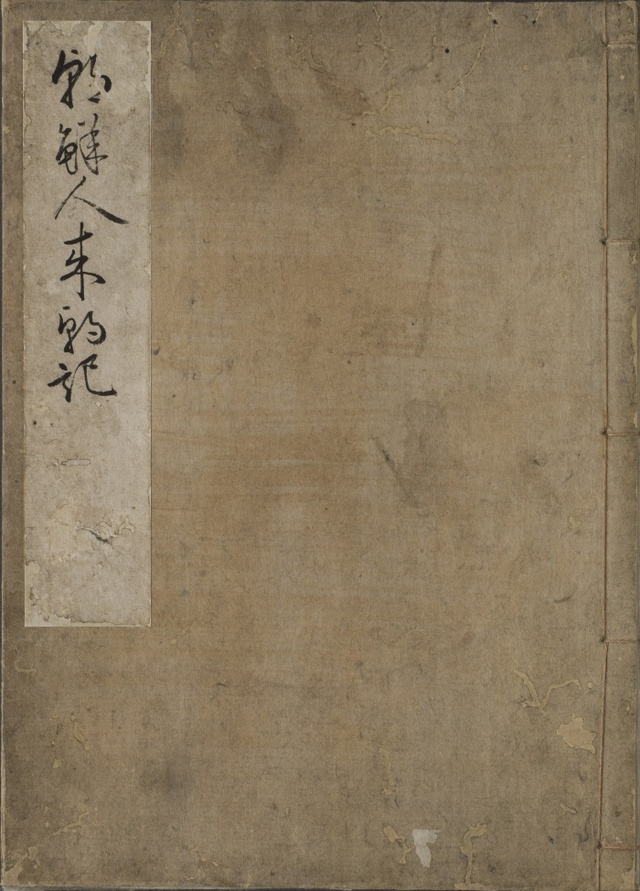 朝鮮人来朝記